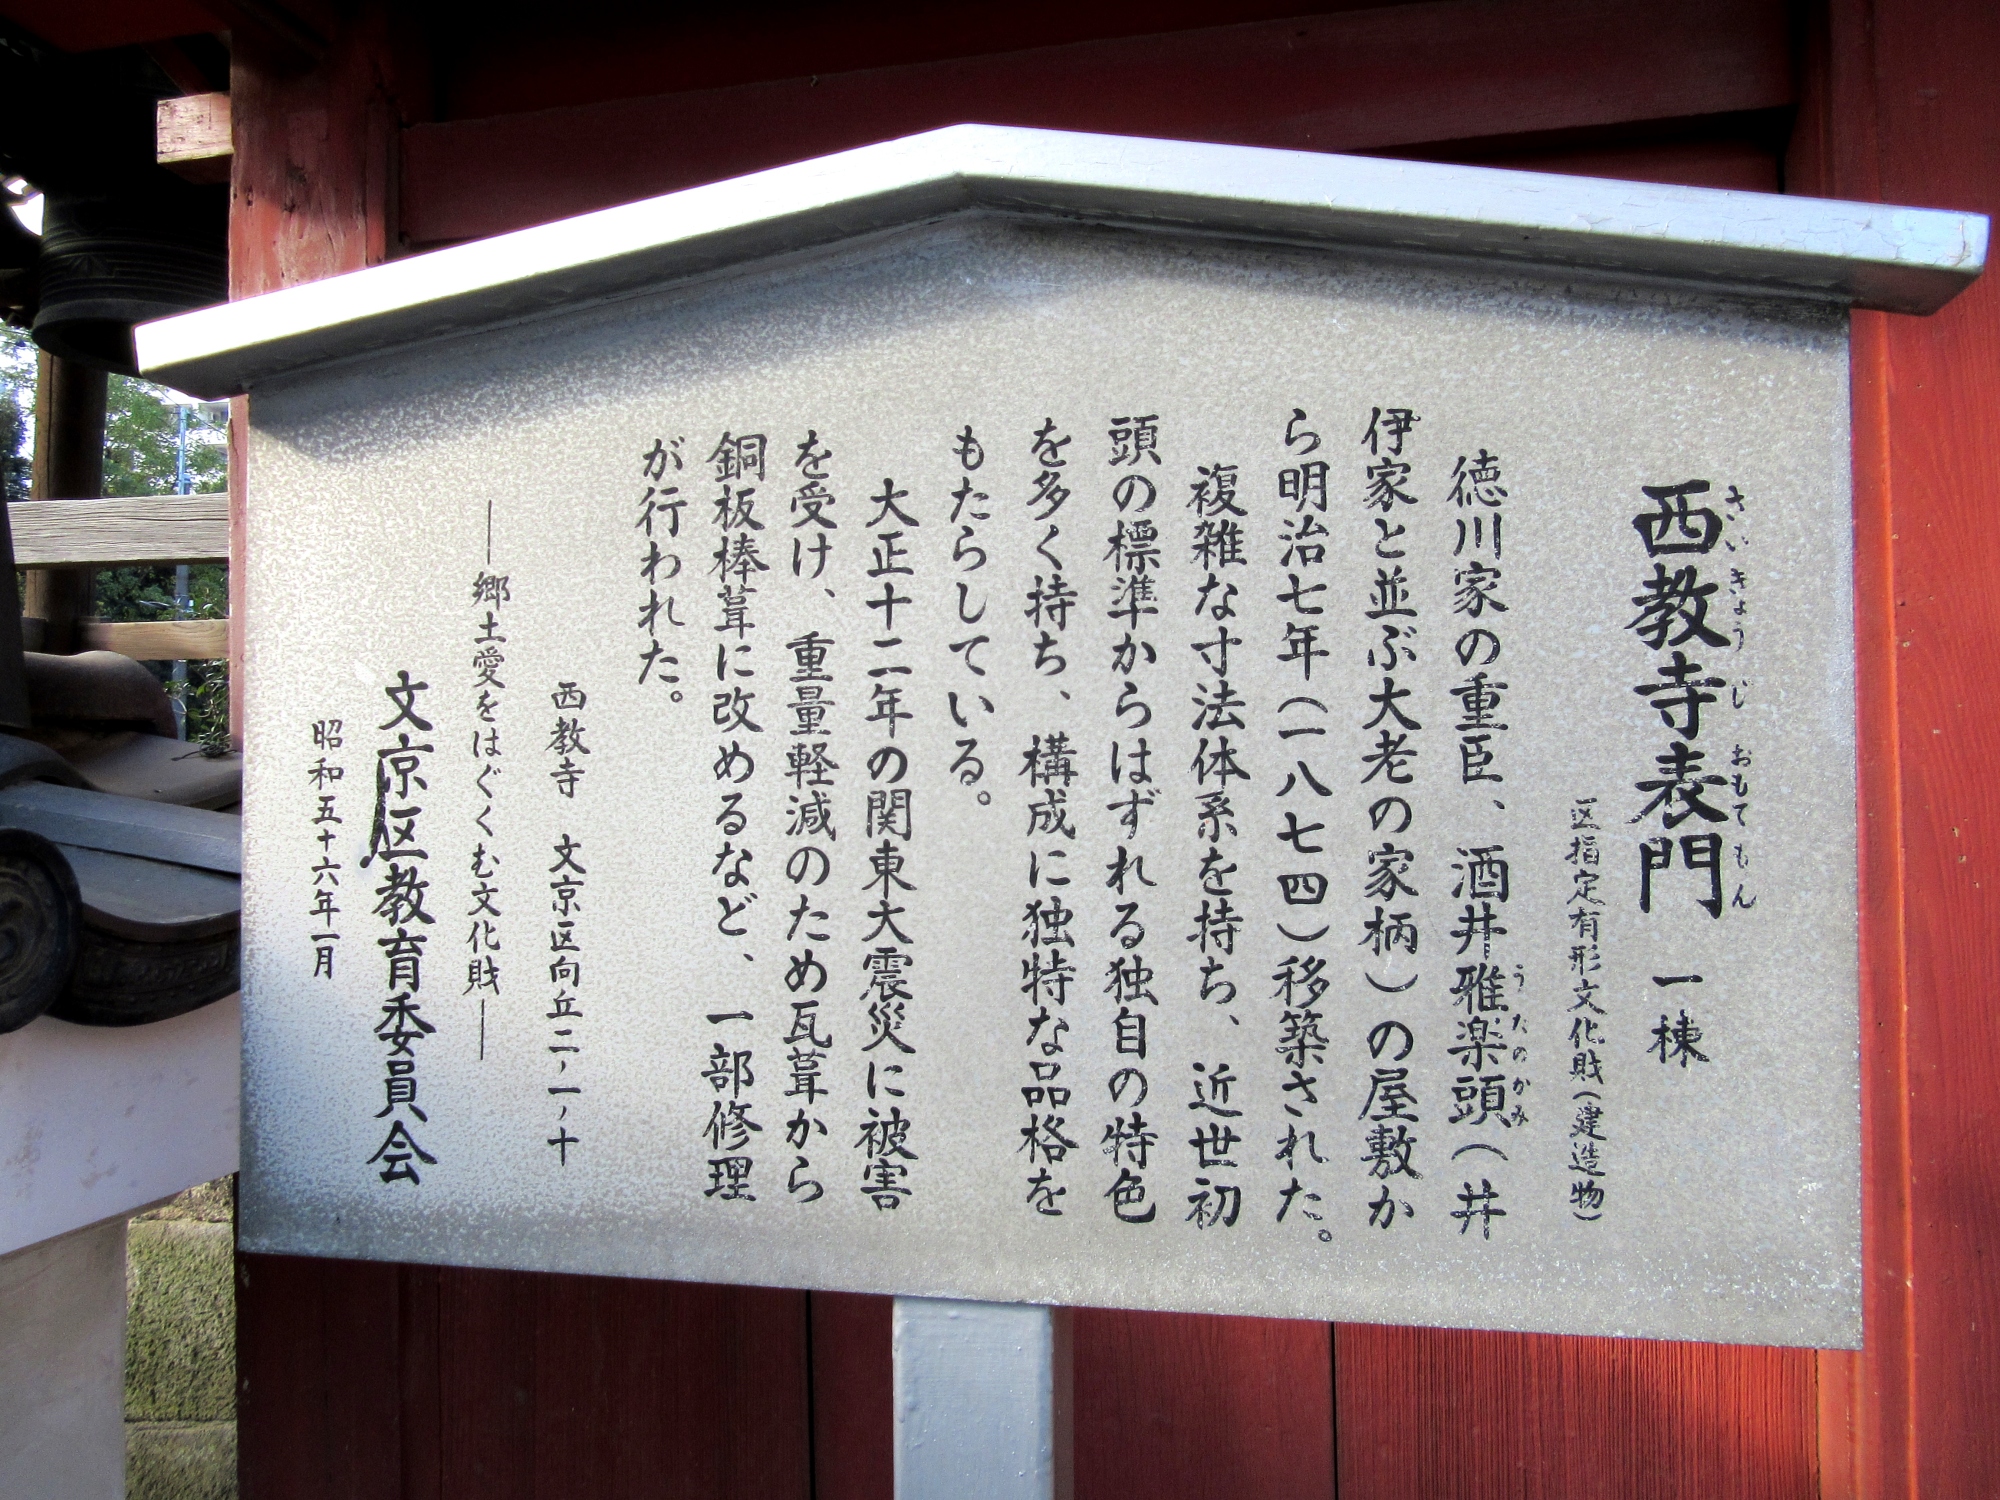 西教寺表門 一棟
さいきょうじ おもてもん
区指定有形文化財(建造物)
徳川家の重臣、酒井雅楽頭(井
うたのかみ
伊家と並ぶ大老の家柄)の屋敷か
ら明治七年(一八七四)移築された。
複雑な寸法体系を持ち、近世初
頭の標準からはずれる独自の特色
を多く持ち、構成に独特な品格を
もたらしている。
大正十二年の関東大震災に被害
を受け、重量軽減のため瓦葺から
銅板棒葺に改めるなど、一部修理
が行われた。
西教寺 文京区向丘二,一,十
―郷土愛をはぐくむ文化財―
文京区教育委員会
昭和五十六年一月